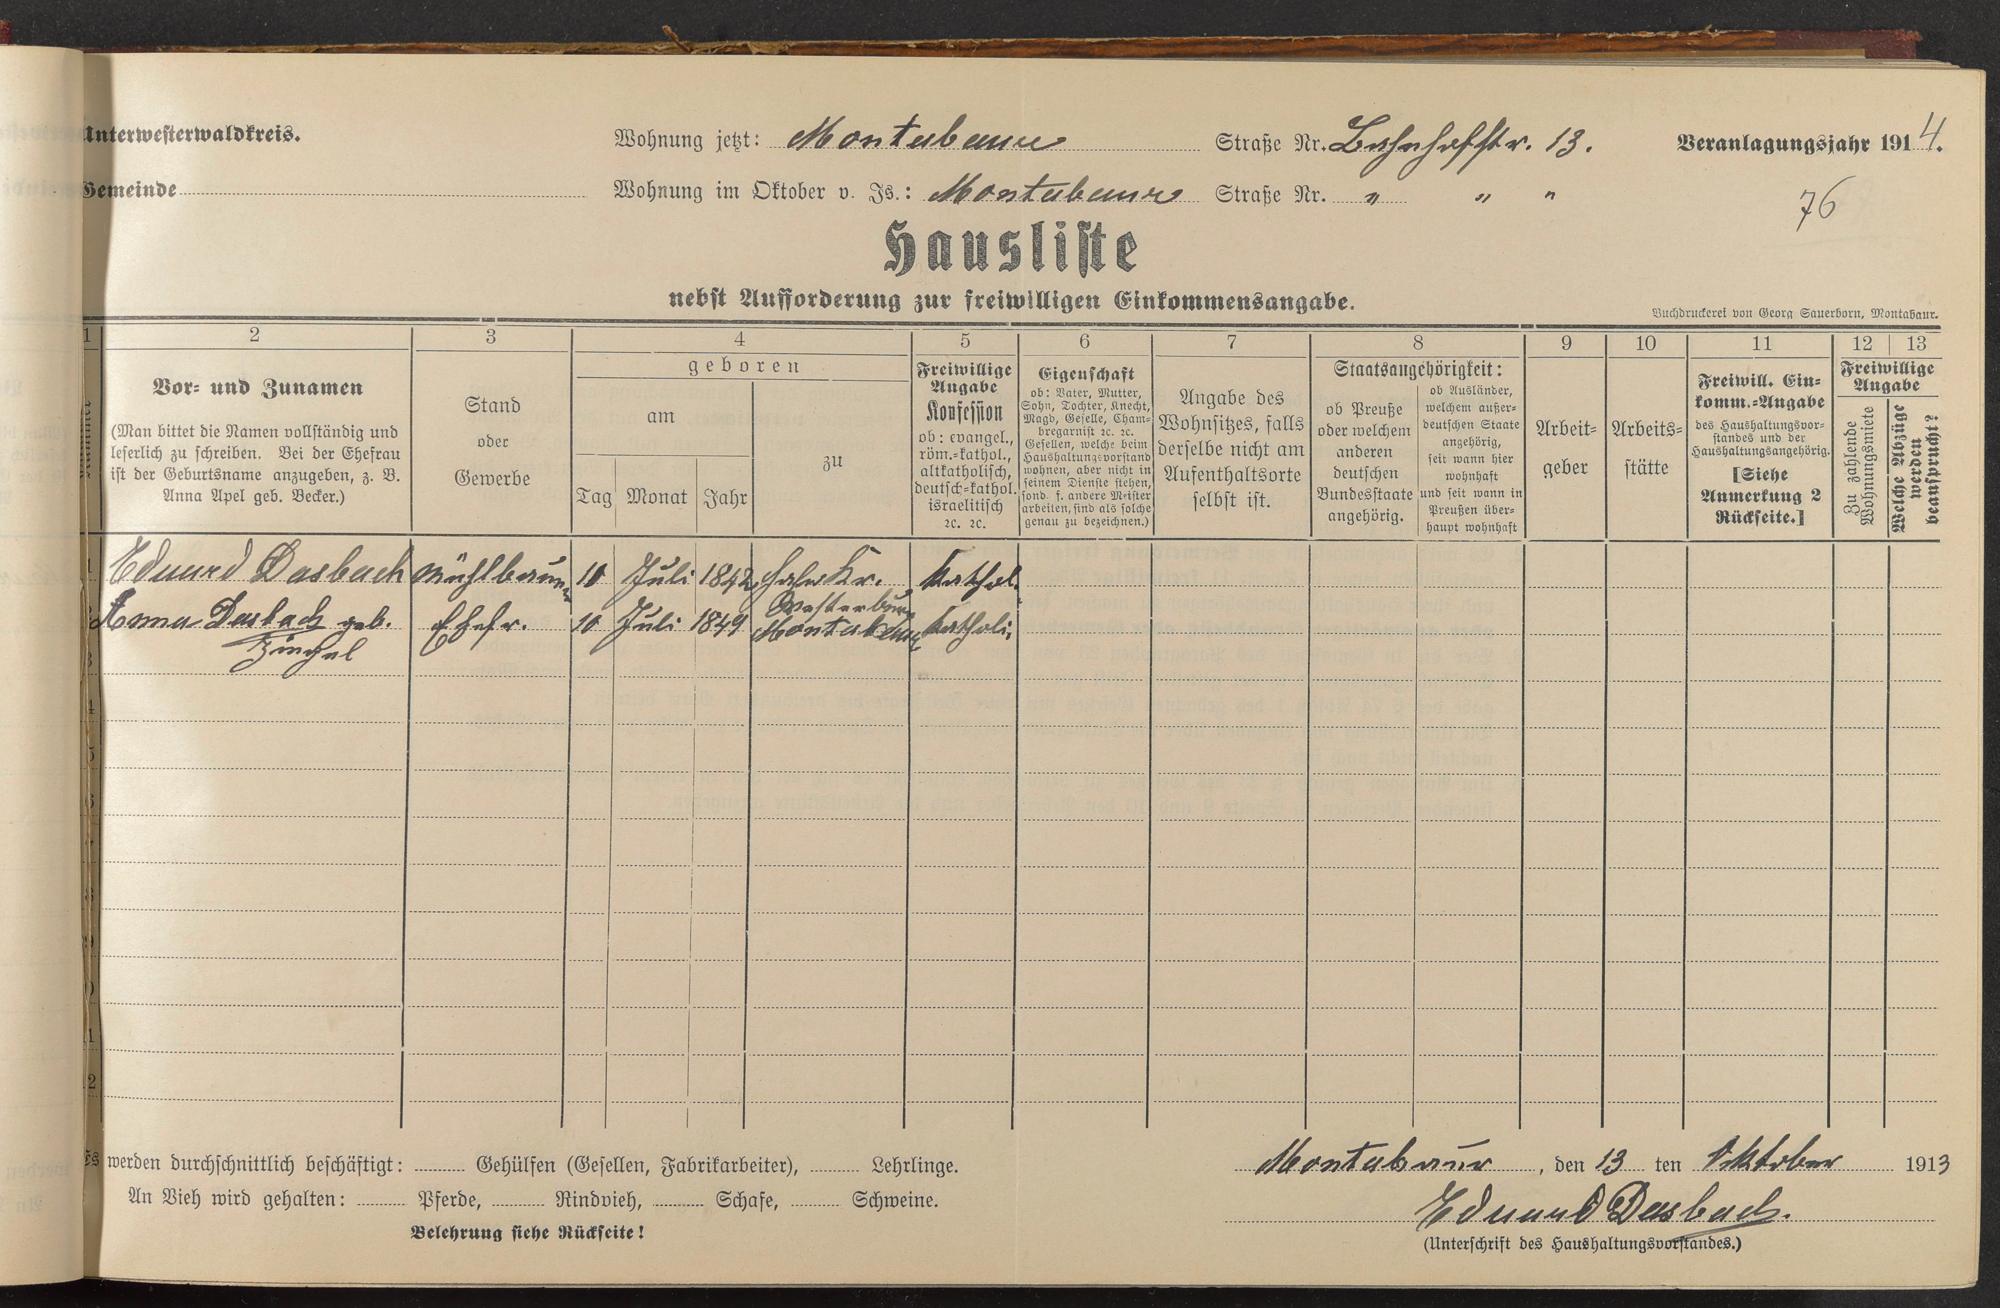 Unterwesterwaldkreis. Wohnung jetzt: Montabaur Straße Nr. Bahnhofstr. 13. Veranlagungsjahr 1914.
Gemeinde Wohnung im Oktober v. Js.: Montabaur Straße Nr. " " "
76
Hausliste
nebst Aufforderung zur freiwilligen Einkommensangabe.
Buchdruckerei von Georg Sauerborn, Montabaur.
1 2 3 4 5 6 7 8 9 10 11 12 13
Vor- und Zunamen
(Man bittet die Namen vollständig und
leserlich zu schreiben. Bei der Ehefrau
ist der Geburtsname anzugeben, z. B.
Anna Apel geb. Becker.)
Stand
oder
Gewerbe
geboren
am
Tag Monat Jahr
zu
Freiwillige
Angabe
Konfession
ob: evangel.,
röm.-kathol.,
altkatholisch,
deutsch-kathol.
israelitisch
ꝛc. ꝛc.
Eigenschaft
ob: Vater, Mutter,
Sohn, Tochter, Knecht,
Magd, Geselle, Cham-
bregarnist ꝛc. ꝛc.
Gesellen, welche beim
Haushaltungsvorstand
wohnen, aber nicht in
seinem Dienste stehen,
sond. f. andere Meister
arbeiten, sind als solche
genau zu bezeichnen.)
Angabe des
Wohnsitzes, falls
derselbe nicht am
Aufenthaltsorte
selbst ist.
Staatsangehörigkeit:
ob Preuße
oder welchem
anderen
deutschen
Bundesstaate
angehörig.
ob Ausländer,
welchem außer-
deutschen Staate
angehörig,
seit wann hier
wohnhaft
und seit wann in
Preußen über-
haupt wohnhaft
Arbeit-
geber
Arbeits-
stätte
Freiwill. Ein-
komm.-Angabe
des Haushaltungsvor-
standes und der
Haushaltungsangehörig.
[Siehe
Anmerkung 2
Rückseite.]
Freiwillige
Angabe
Zu zahlende
Wohnungsmiete
Welche Abzüge
werden
beansprucht?
1 Eduard Dasbach Mühlbaur 10 Juli 1842 Kr. Kathol.
Westerburg
2 Anna Dasbach geb. Ehefr. 10 Juli 1849 Montabaur Katholi.
3
4
5
6
7
8
9
10
11
12
Es werden durchschnittlich beschäftigt: Gehülfen (Gesellen, Fabrikarbeiter), Lehrlinge.
An Vieh wird gehalten: Pferde, Rindvieh, Schafe, Schweine.
Belehrung siehe Rückseite!
Montabaur, den 13 ten Oktober 1913
Eduard Dasbach.
(Unterschrift des Haushaltungsvorstandes.)